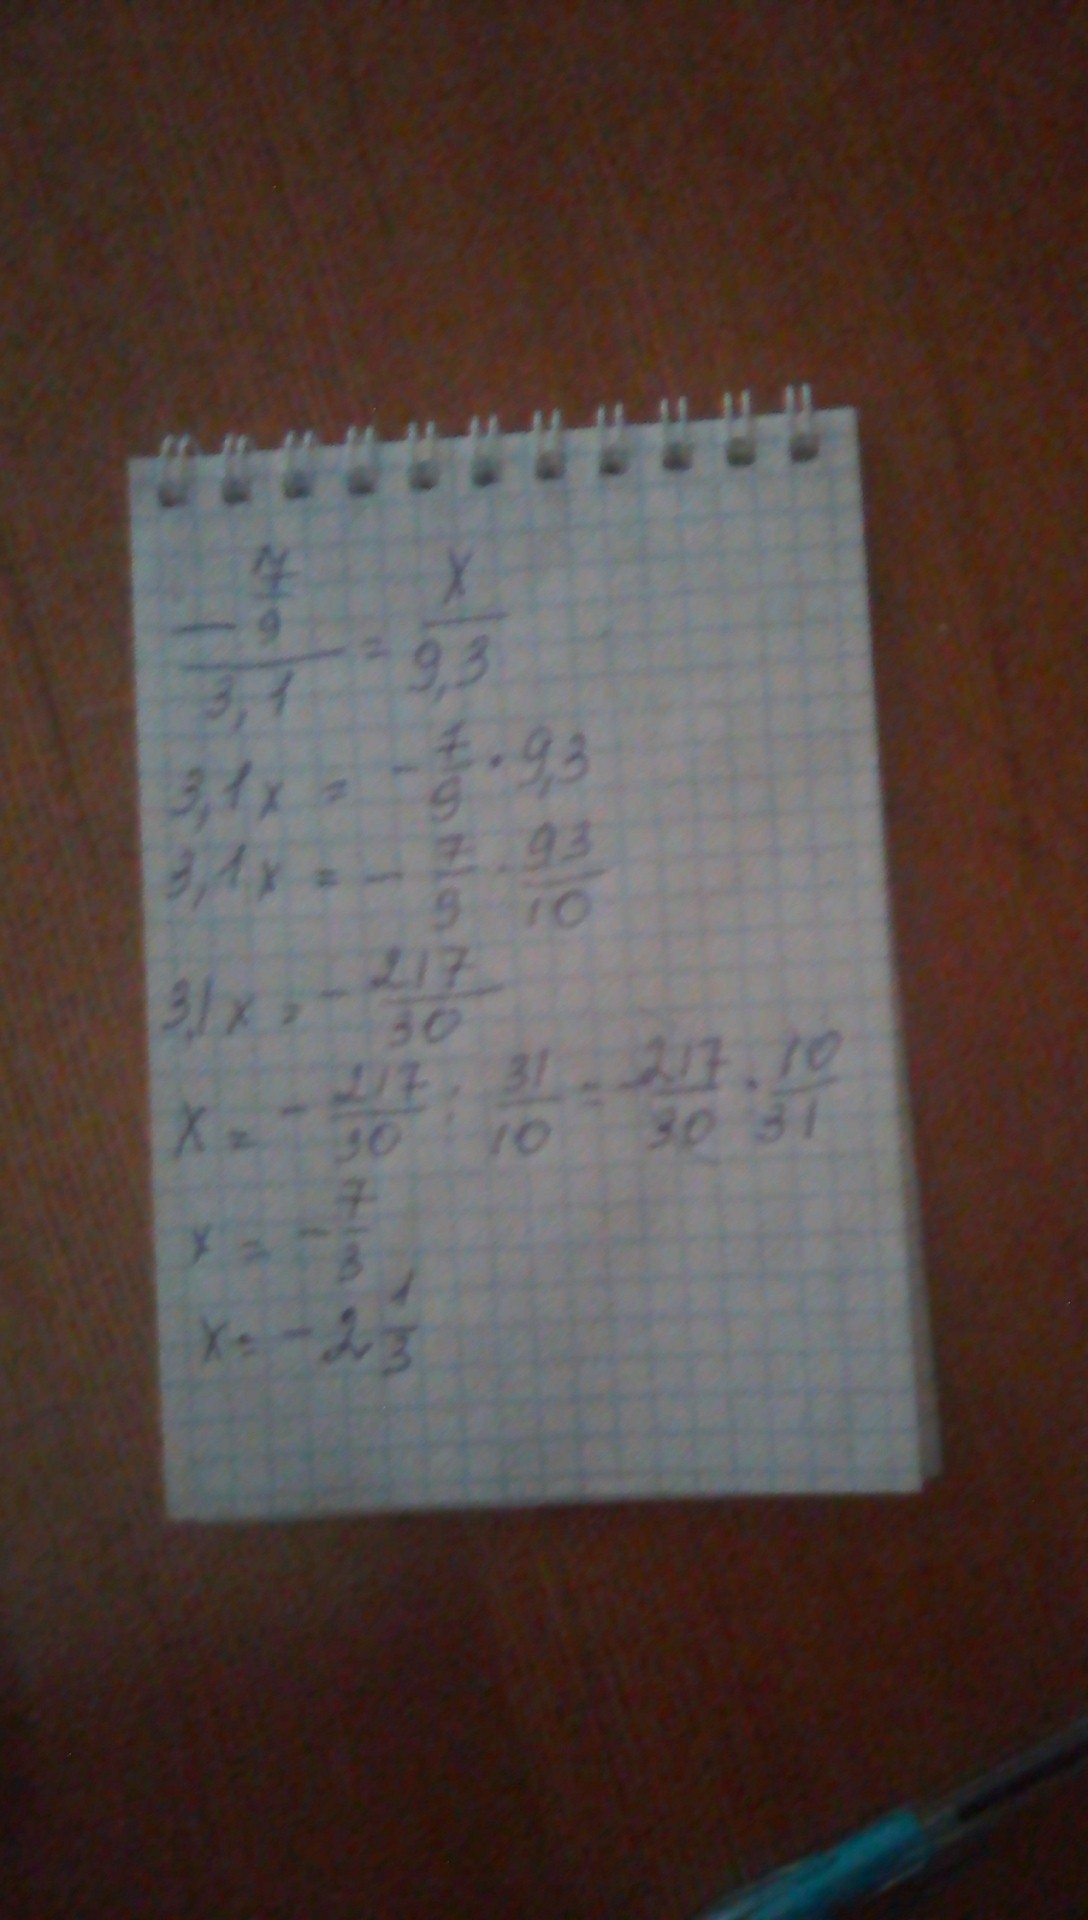 (-7/9)/3,1 = x/9,3
3,1x = -7/9 · 9,3
3,1x = -7/9 · 93/10
3,1x = -217/30
x = -217/30 : 31/10 = -217/30 · 10/31
x = -7/3
x = -2 1/3